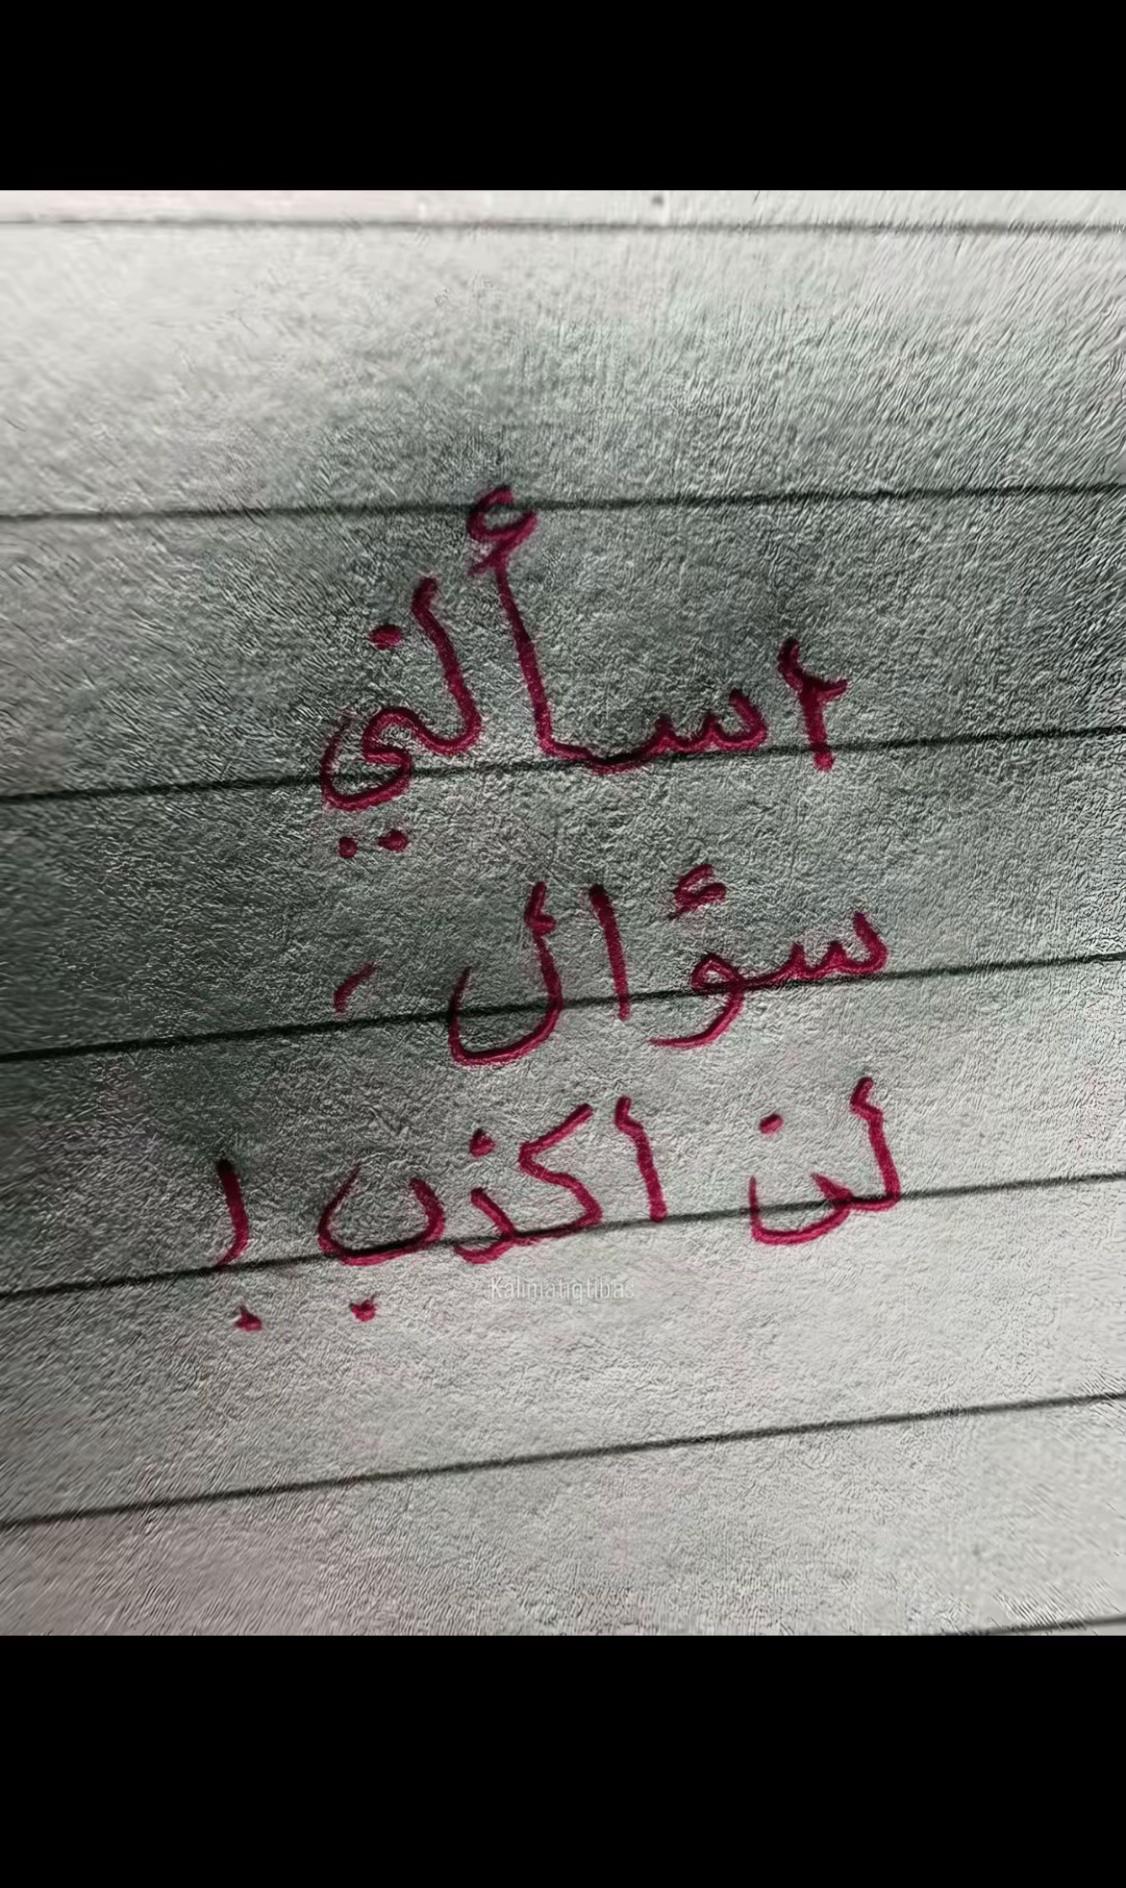 اسألني
سؤال ،
لن اكذب !
Kalimatiqtibas